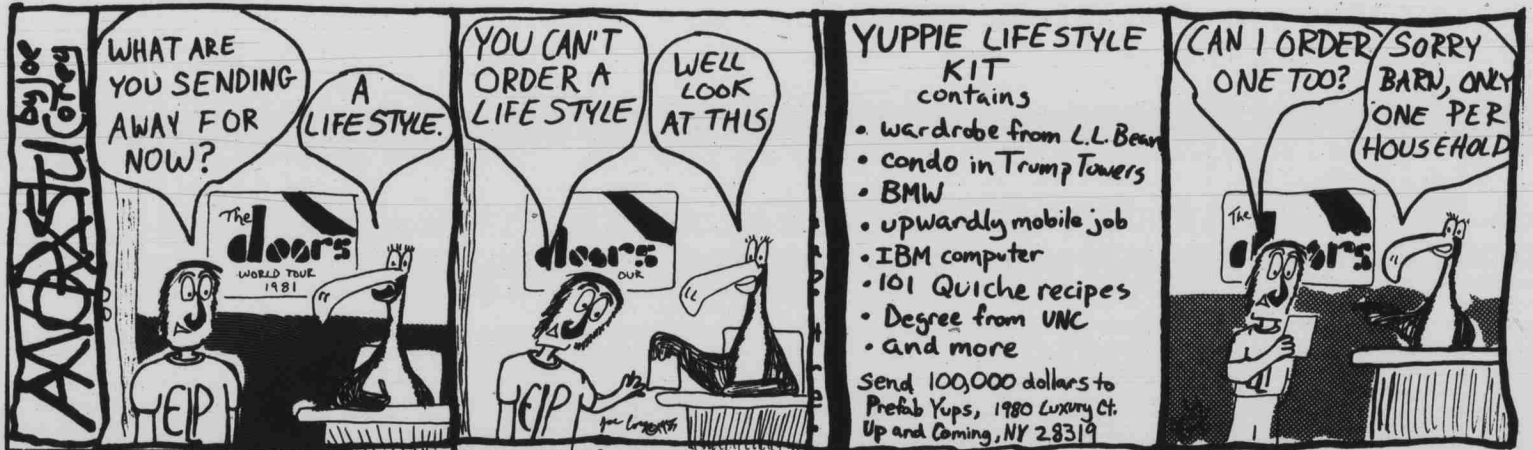 by Joe
Corey
WHAT ARE
YOU SENDING
AWAY FOR
NOW?
A
LIFESTYLE.
The
doors
WORLD TOUR
1981
EIP
YOU CAN'T
ORDER A
LIFE STYLE
WELL
LOOK
AT THIS
doors
OUR
EIP
YUPPIE LIFESTYLE
KIT
contains
• wardrobe from L.L. Bean
• condo in Trump Towers
• BMW
• upwardly mobile job
• IBM computer
• 101 Quiche recipes
• Degree from UNC
• and more
send 100,000 dollars to
Prefab Yups, 1980 Luxury Ct.
Up and Coming, NY 28319
CAN I ORDER
ONE TOO?
SORRY
BARN, ONLY
ONE PER
HOUSEHOLD
The